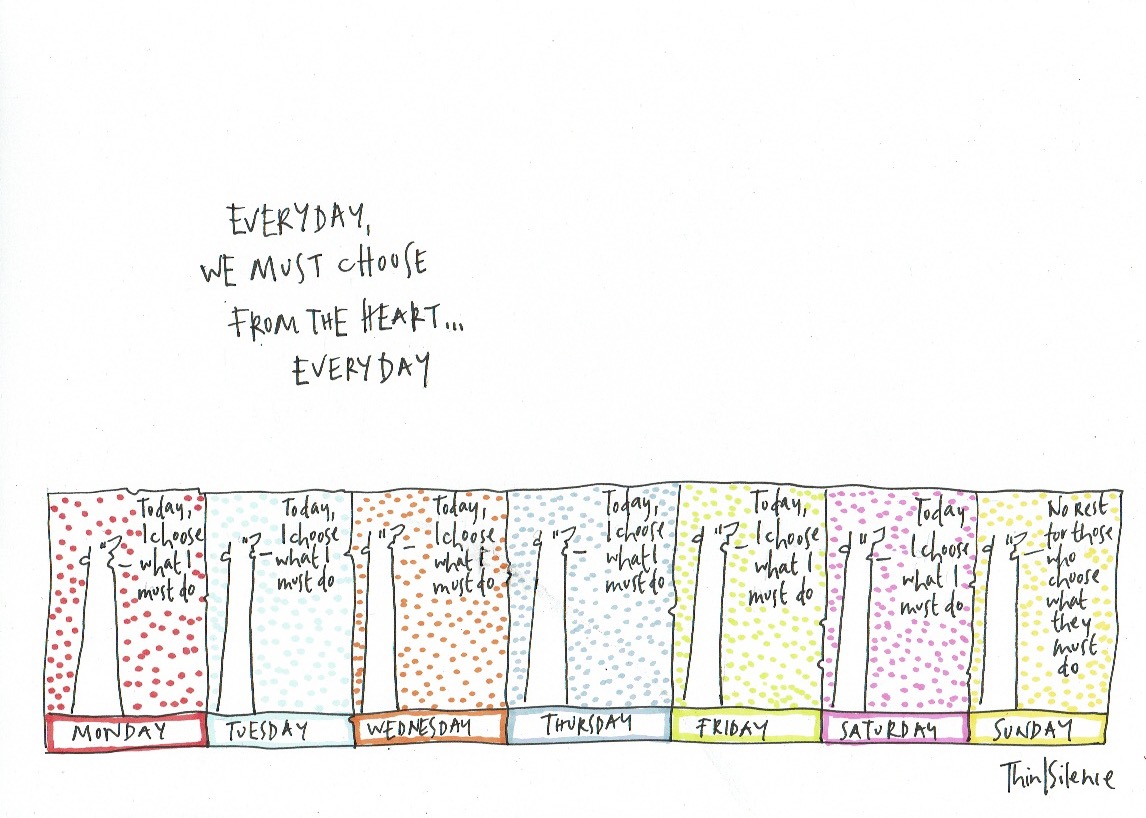 EVERYDAY,
WE MUST CHOOSE
FROM THE HEART...
EVERYDAY
Today,
I choose
what I
must do
Today,
I choose
what I
must do
Today,
I choose
what I
must do
Today,
I choose
what I
must do
Today,
I choose
what I
must do
Today
I choose
what I
must do
No Rest
for those
who
choose
what
they
must
do
MONDAY
TUESDAY
WEDNESDAY
THURSDAY
FRIDAY
SATURDAY
SUNDAY
Thin|Silence